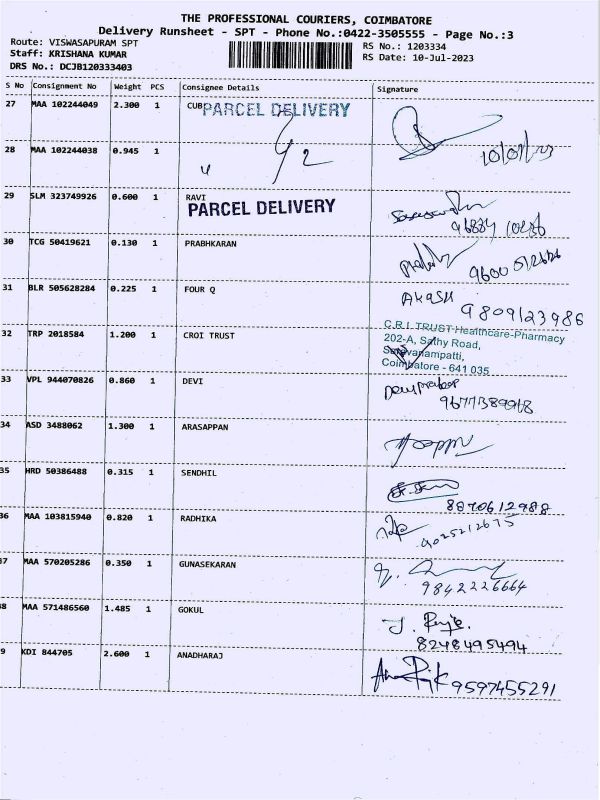 THE PROFESSIONAL COURIERS, COIMBATORE
Delivery Runsheet - SPT - Phone No.:0422-3505555 - Page No.:3
Route: VISWASAPURAM SPT
Staff: KRISHANA KUMAR
DRS No.: DCJB120333403
RS No.: 1203334
RS Date: 10-Jul-2023
S No Consignment No Weight PCS Consignee Details Signature
27 MAA 102244049 2.300 1 CUB
PARCEL DELIVERY
28 MAA 102244038 0.945 1
29 SLM 323749926 0.600 1 RAVI
PARCEL DELIVERY
30 TCG 50419621 0.130 1 PRABHKARAN
31 BLR 505628284 0.225 1 FOUR Q AKASH
9809123986
32 TRP 2018584 1.200 1 CROI TRUST
C.R.I. TRUST-Healthcare-Pharmacy
202-A, Sathy Road,
Saravanampatti,
Coimbatore - 641 035
33 VPL 944070826 0.860 1 DEVI
34 ASD 3488062 1.300 1 ARASAPPAN
35 HRD 50386488 0.315 1 SENDHIL
8870612988
36 MAA 103815940 0.820 1 RADHIKA
9025212675
37 MAA 570205286 0.350 1 GUNASEKARAN
9842226664
38 MAA 571486560 1.485 1 GOKUL
8248495494
9 KDI 844705 2.600 1 ANADHARAJ
9597455291